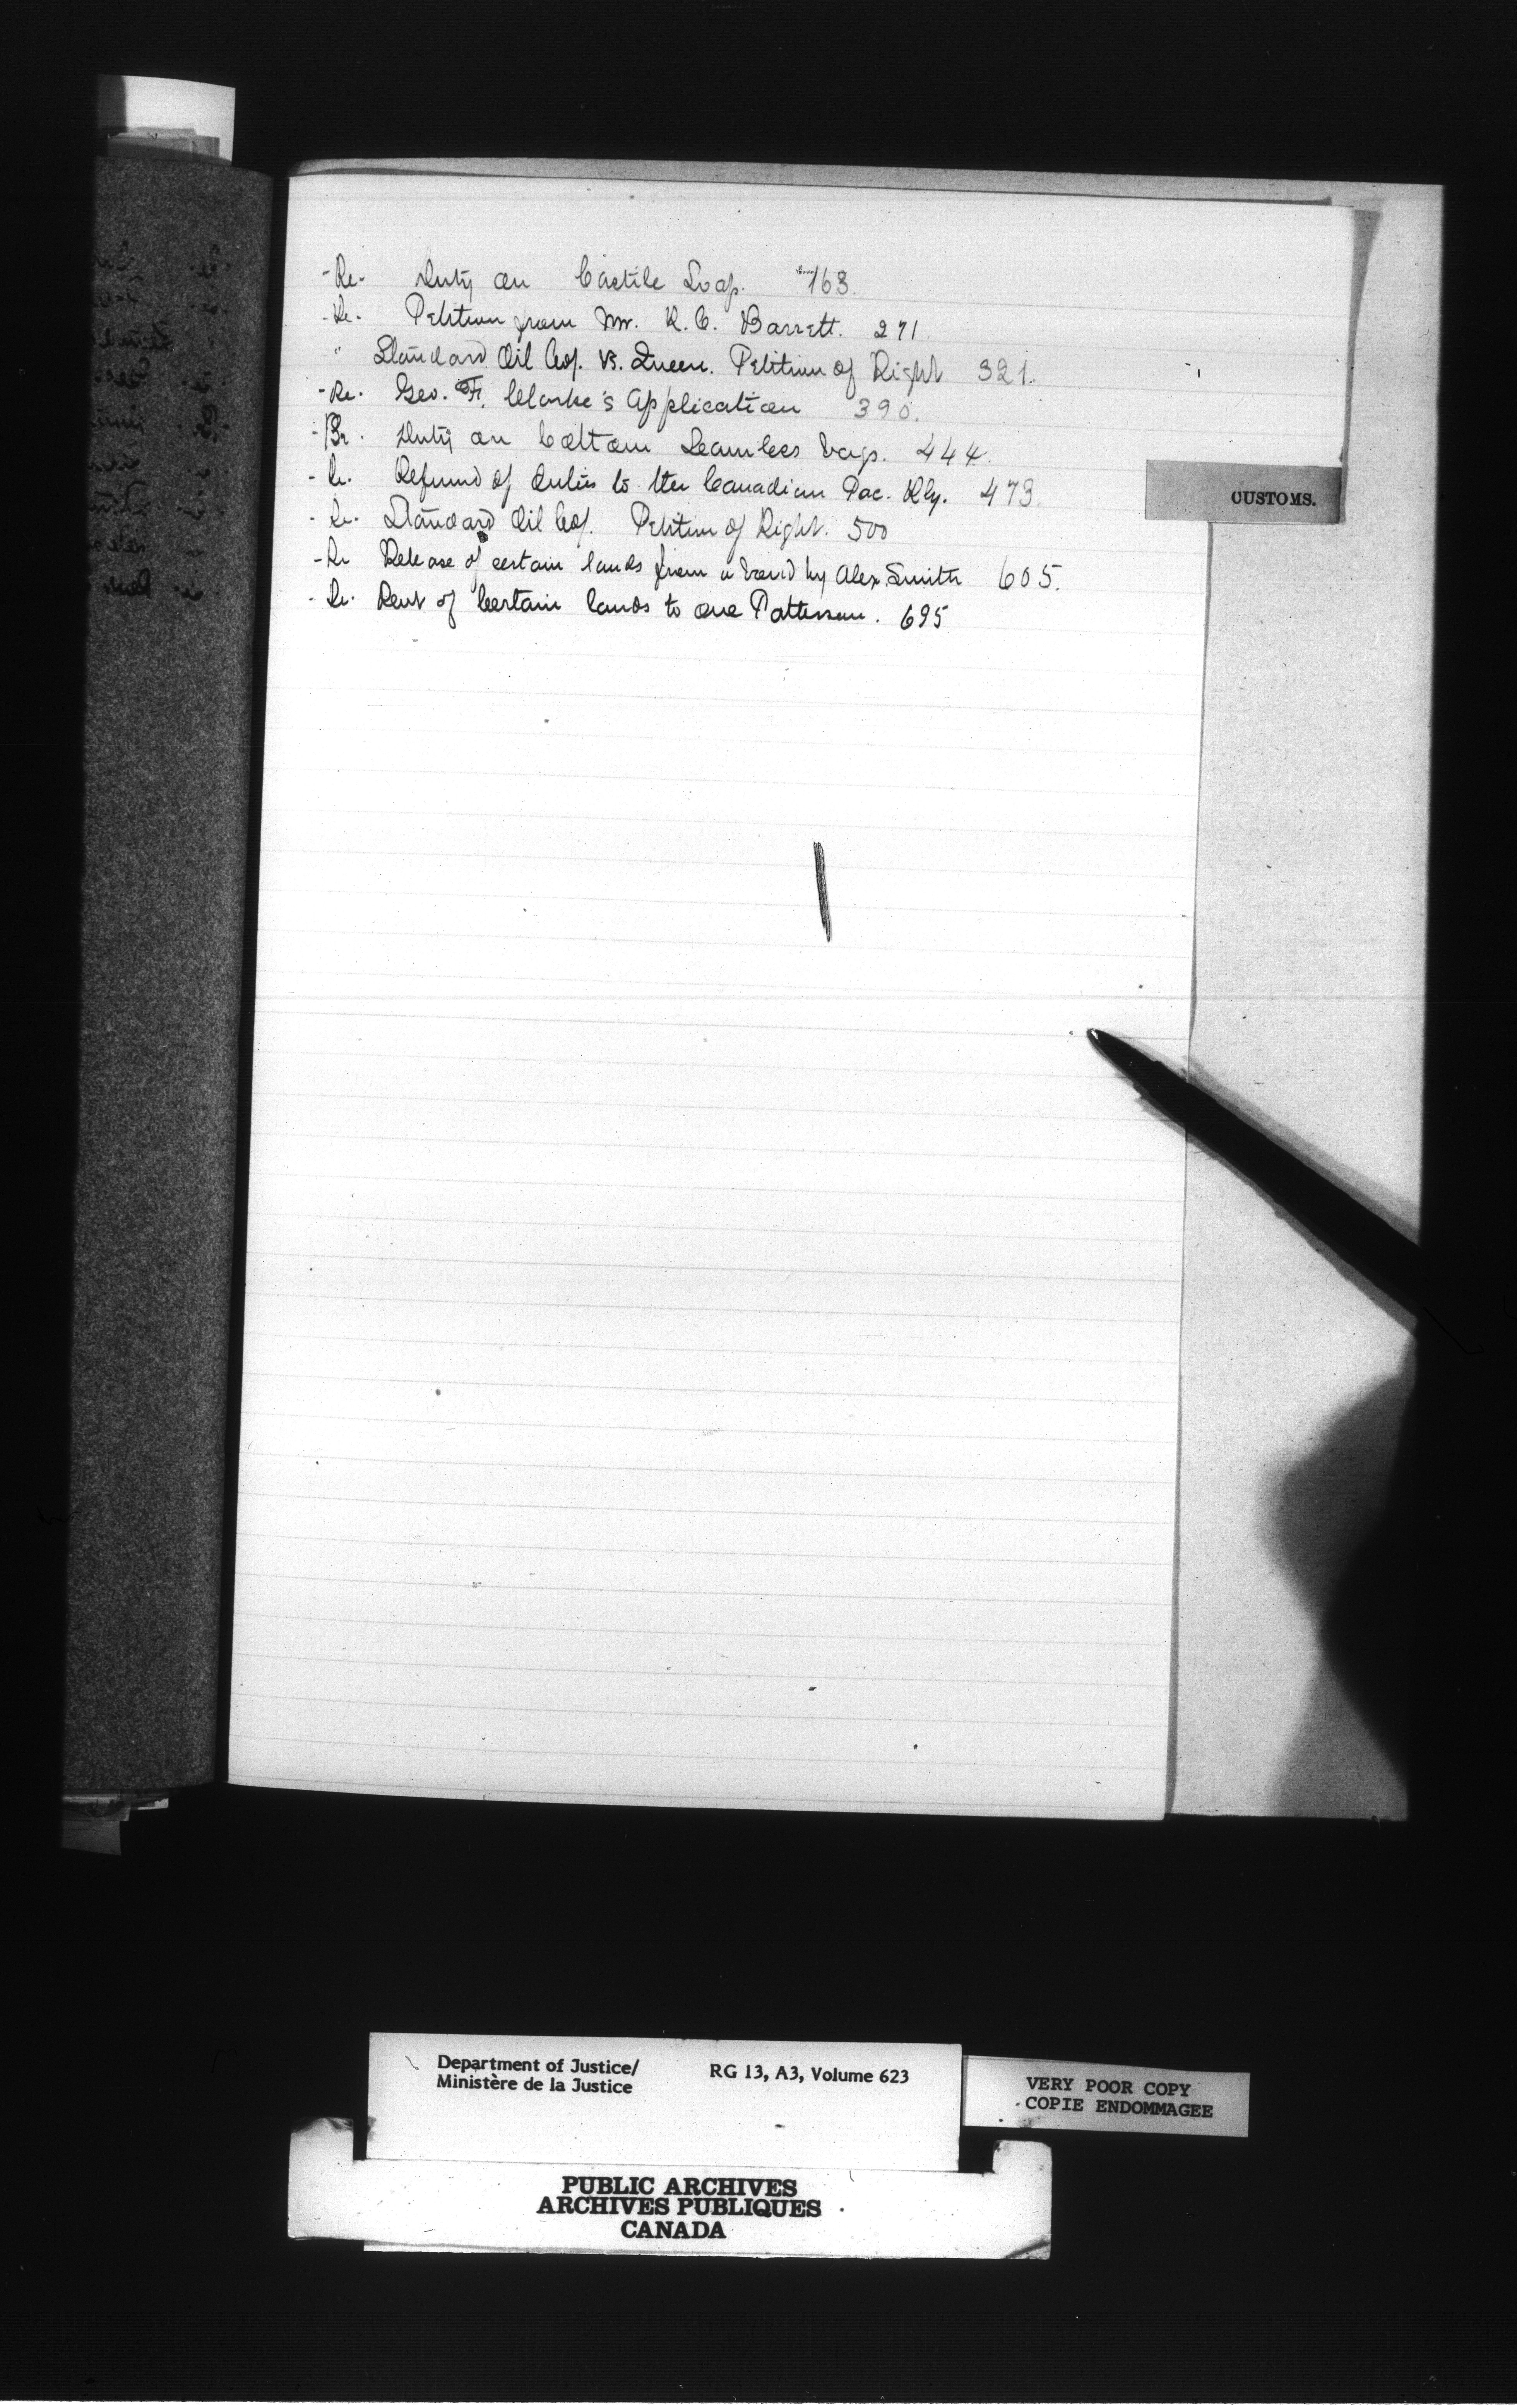 - Re. Duty on Castile Soap. 163.
- Re. Petition from Mr. R. C. Barrett. 271
" Standard Oil Coy. vs. Queen. Petition of Right 321.
- Re. Geo. F. Clarke's Application 390.
- Re. Duty on Cotton Seamless bags. 444.
- Re. Refund of duties to the Canadian Pac. Rly. 473.
- Re. Standard Oil Coy. Petition of Right. 500
- Re Release of certain lands from a bond by Alex. Smith 605.
- Re. Rent of Certain lands to one Patterson. 695
CUSTOMS.
Department of Justice/
Ministère de la Justice
RG 13, A3, Volume 623
VERY POOR COPY
COPIE ENDOMMAGEE
PUBLIC ARCHIVES
ARCHIVES PUBLIQUES
CANADA